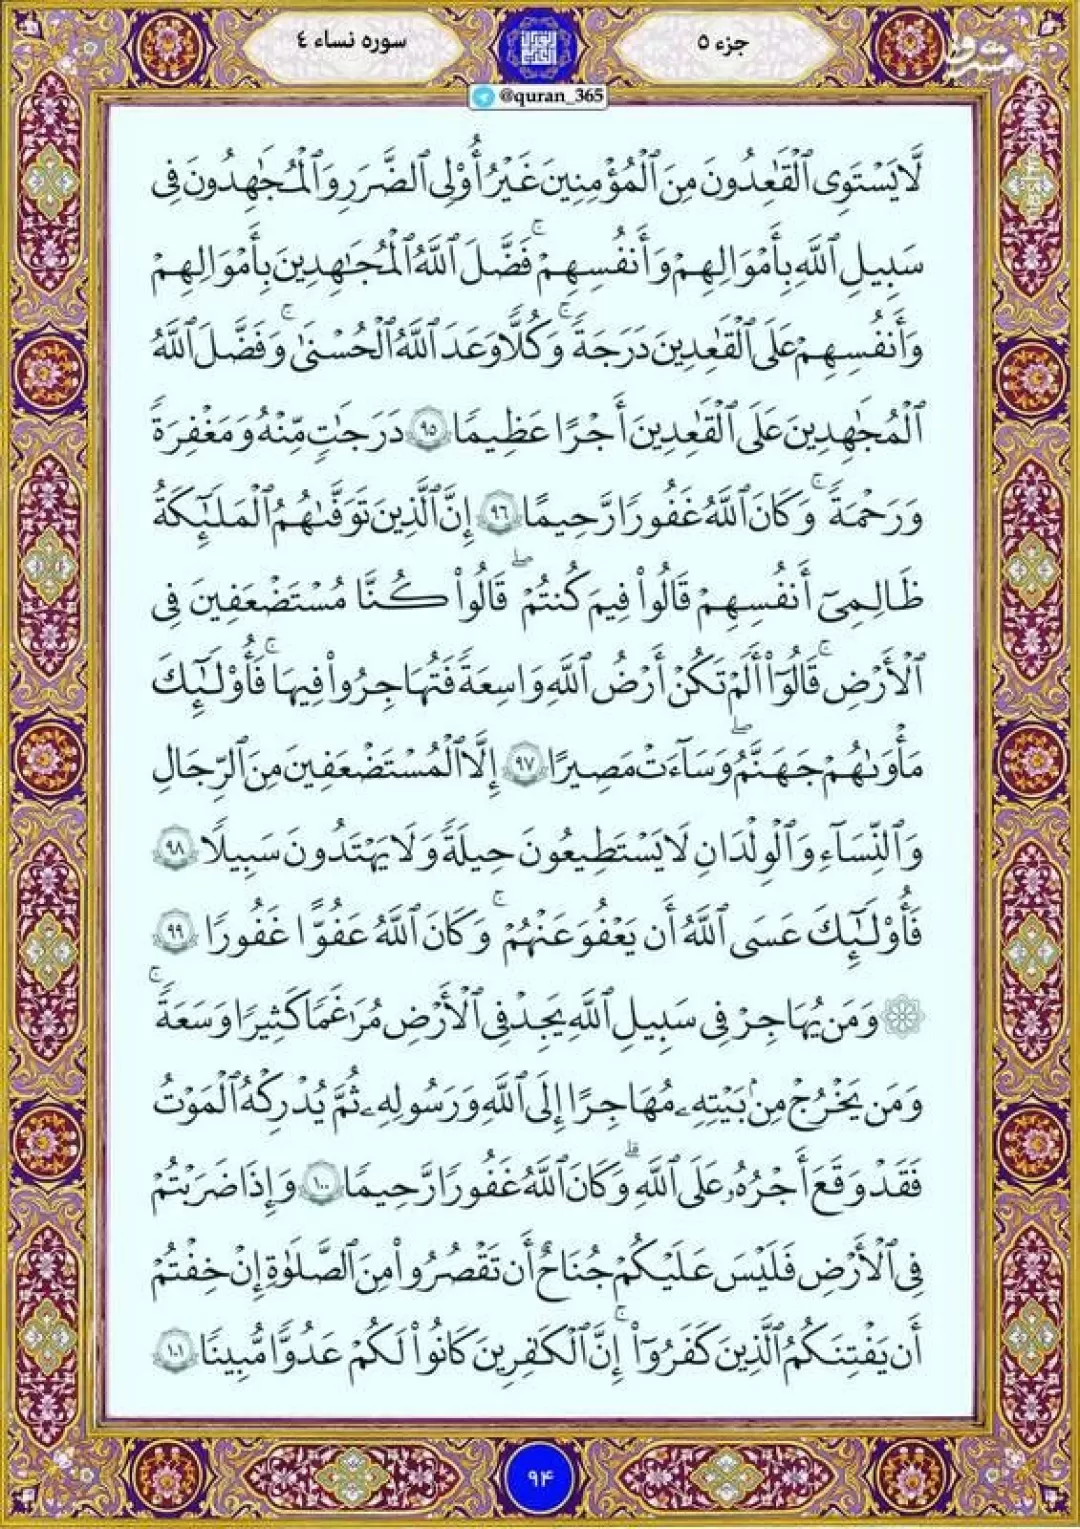 جزء ٥
سوره نساء ٤
@quran_365
لَّا يَسْتَوِى ٱلْقَـٰعِدُونَ مِنَ ٱلْمُؤْمِنِينَ غَيْرُ أُو۟لِى ٱلضَّرَرِ وَٱلْمُجَـٰهِدُونَ فِى
سَبِيلِ ٱللَّهِ بِأَمْوَٰلِهِمْ وَأَنفُسِهِمْ ۚ فَضَّلَ ٱللَّهُ ٱلْمُجَـٰهِدِينَ بِأَمْوَٰلِهِمْ
وَأَنفُسِهِمْ عَلَى ٱلْقَـٰعِدِينَ دَرَجَةً ۚ وَكُلًّا وَعَدَ ٱللَّهُ ٱلْحُسْنَىٰ ۚ وَفَضَّلَ ٱللَّهُ
ٱلْمُجَـٰهِدِينَ عَلَى ٱلْقَـٰعِدِينَ أَجْرًا عَظِيمًا ٩٥ دَرَجَـٰتٍ مِّنْهُ وَمَغْفِرَةً
وَرَحْمَةً ۚ وَكَانَ ٱللَّهُ غَفُورًا رَّحِيمًا ٩٦ إِنَّ ٱلَّذِينَ تَوَفَّىٰهُمُ ٱلْمَلَـٰٓئِكَةُ
ظَالِمِىٓ أَنفُسِهِمْ قَالُوا۟ فِيمَ كُنتُمْ ۖ قَالُوا۟ كُنَّا مُسْتَضْعَفِينَ فِى
ٱلْأَرْضِ ۚ قَالُوٓا۟ أَلَمْ تَكُنْ أَرْضُ ٱللَّهِ وَٰسِعَةً فَتُهَاجِرُوا۟ فِيهَا ۚ فَأُو۟لَـٰٓئِكَ
مَأْوَىٰهُمْ جَهَنَّمُ ۖ وَسَآءَتْ مَصِيرًا ٩٧ إِلَّا ٱلْمُسْتَضْعَفِينَ مِنَ ٱلرِّجَالِ
وَٱلنِّسَآءِ وَٱلْوِلْدَٰنِ لَا يَسْتَطِيعُونَ حِيلَةً وَلَا يَهْتَدُونَ سَبِيلًا ٩٨
فَأُو۟لَـٰٓئِكَ عَسَى ٱللَّهُ أَن يَعْفُوَ عَنْهُمْ ۚ وَكَانَ ٱللَّهُ عَفُوًّا غَفُورًا ٩٩
۞ وَمَن يُهَاجِرْ فِى سَبِيلِ ٱللَّهِ يَجِدْ فِى ٱلْأَرْضِ مُرَٰغَمًا كَثِيرًا وَسَعَةً ۚ
وَمَن يَخْرُجْ مِنۢ بَيْتِهِۦ مُهَاجِرًا إِلَى ٱللَّهِ وَرَسُولِهِۦ ثُمَّ يُدْرِكْهُ ٱلْمَوْتُ
فَقَدْ وَقَعَ أَجْرُهُۥ عَلَى ٱللَّهِ ۗ وَكَانَ ٱللَّهُ غَفُورًا رَّحِيمًا ١٠٠ وَإِذَا ضَرَبْتُمْ
فِى ٱلْأَرْضِ فَلَيْسَ عَلَيْكُمْ جُنَاحٌ أَن تَقْصُرُوا۟ مِنَ ٱلصَّلَوٰةِ إِنْ خِفْتُمْ
أَن يَفْتِنَكُمُ ٱلَّذِينَ كَفَرُوٓا۟ ۚ إِنَّ ٱلْكَـٰفِرِينَ كَانُوا۟ لَكُمْ عَدُوًّا مُّبِينًا ١٠١
٩۴